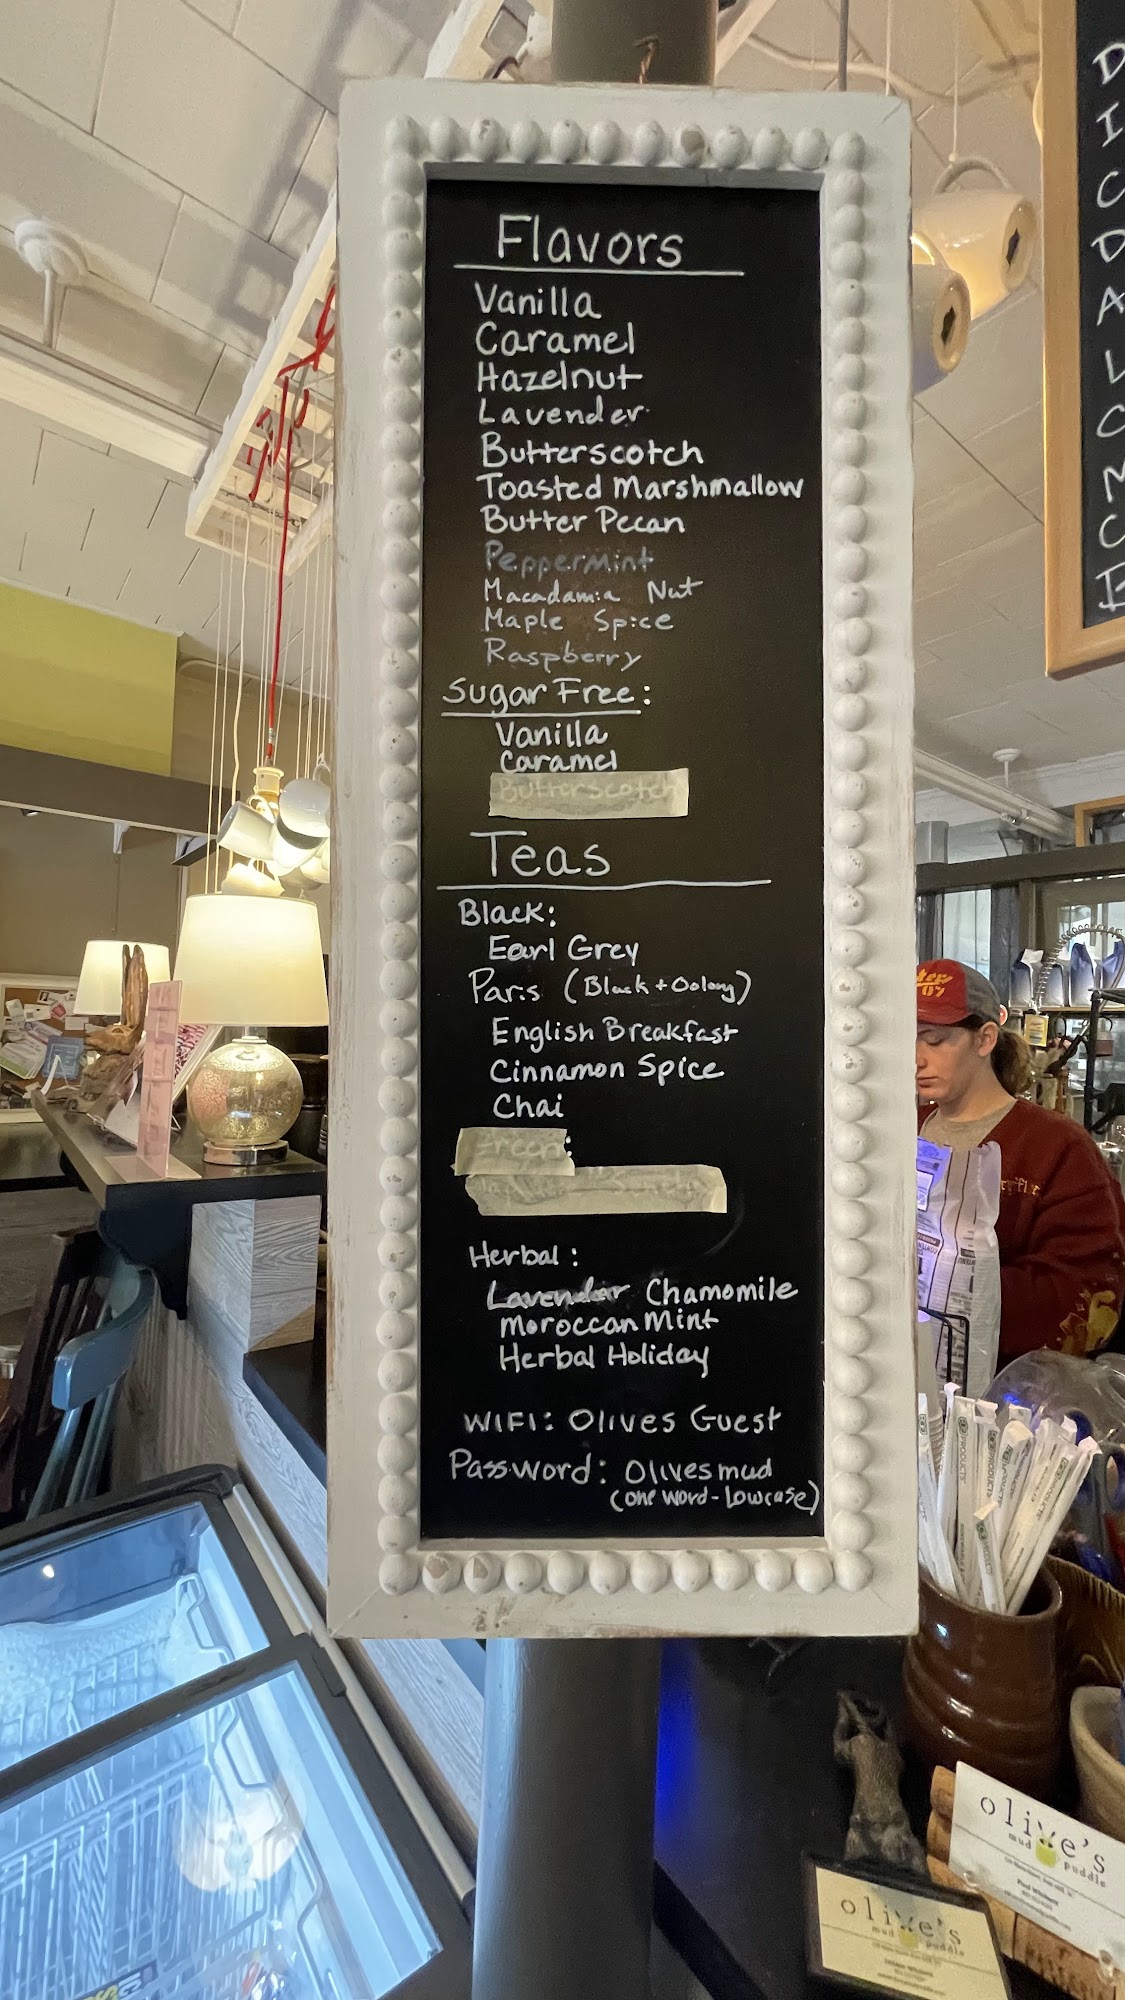 Flavors
Vanilla
Caramel
Hazelnut
Lavender
Butterscotch
Toasted Marshmallow
Butter Pecan
Peppermint
Macadamia Nut
Maple Spice
Raspberry
Sugar Free:
Vanilla
Caramel
Butterscotch
Teas
Black:
Earl Grey
Paris (Black + Oolong)
English Breakfast
Cinnamon Spice
Chai
Green:
Herbal:
Lavender Chamomile
Moroccan Mint
Herbal Holiday
WIFI: Olives Guest
Password: Olivesmud
(one word - lowcase)
D
I
C
D
A
L
C
M
C
olive's
mud puddle
olive's
mud puddle